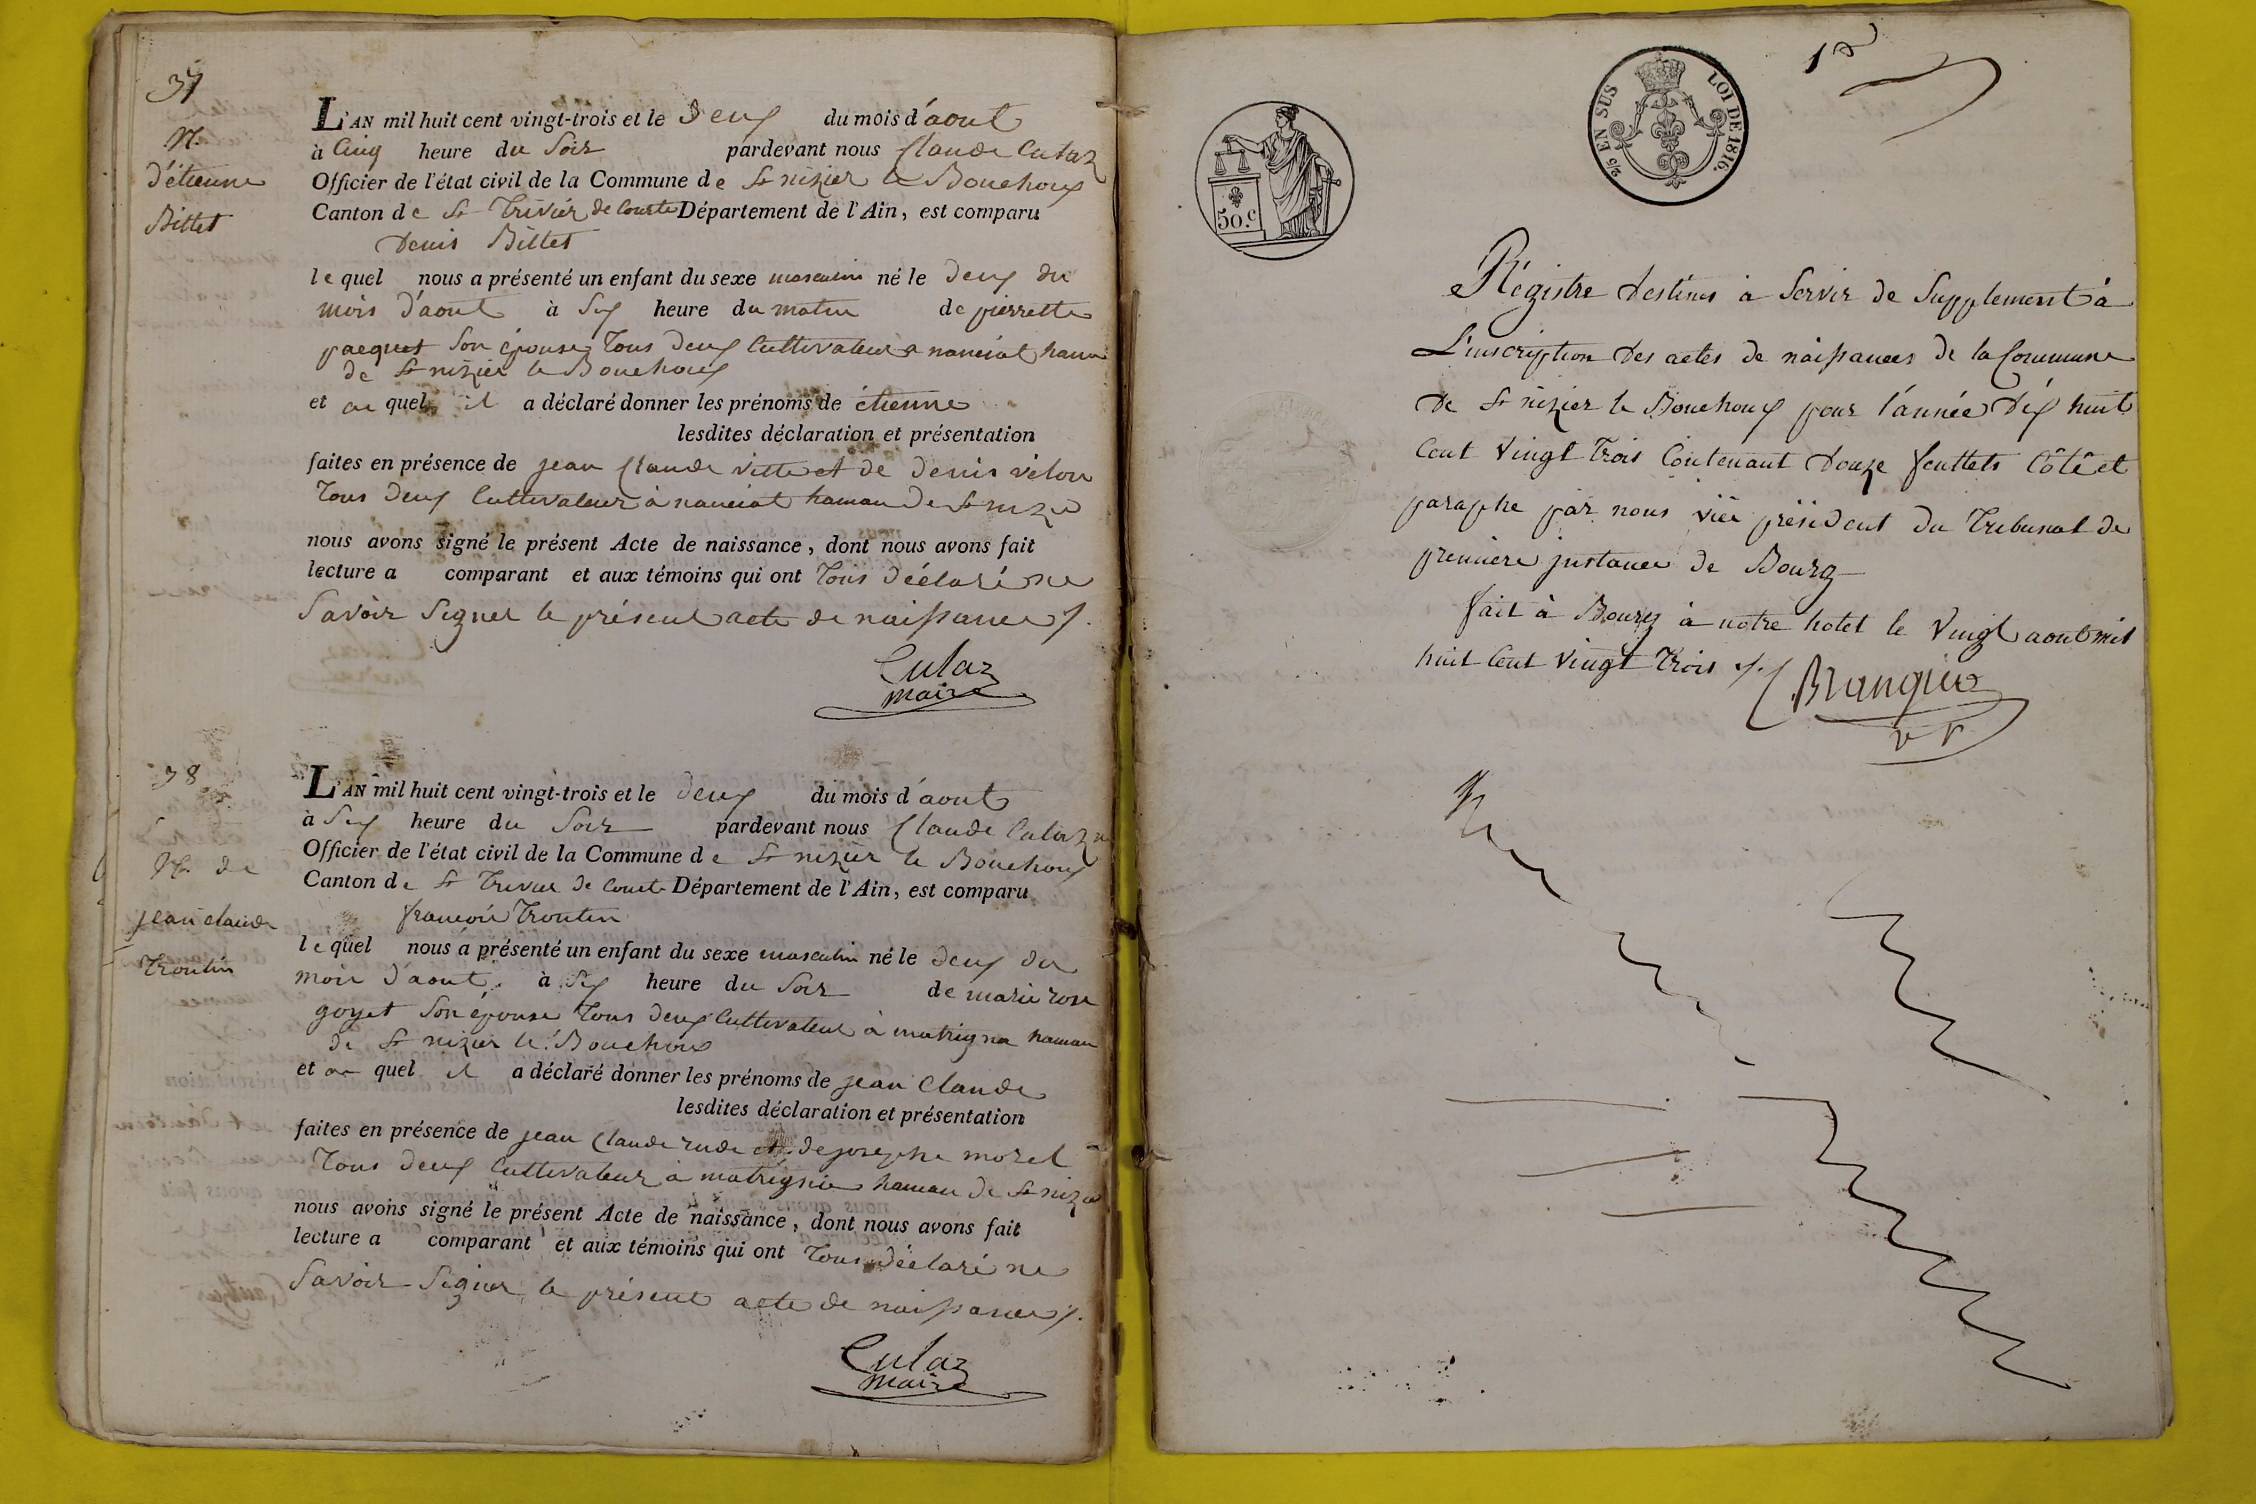 37
N.
d'étienne
Billet
L'AN mil huit cent vingt-trois et le deux du mois d'aout
à Cinq heure du Soir pardevant nous Claude Culaz
Officier de l'état civil de la Commune de St nizier le Bouchoux
Canton de St Trivier de Courte Département de l'Ain, est comparu
Denis Billet
lequel nous a présenté un enfant du sexe masculin né le deux du
mois d'aout à Six heure du matin de pierrette
pacquet Son épouse Tous deux Cultivateur a nanciat hamau
de St nizier le Bouchoux
et au quel il a déclaré donner les prénoms de étienne
lesdites déclaration et présentation
faites en présence de jean Claude vitte et de denis
Tous deux Cultivateur à nanciat hamau de St nizie
nous avons signé le présent Acte de naissance, dont nous avons fait
lecture a comparant et aux témoins qui ont Tous déclaré ne
Savoir Signer le présent acte de naissance /.
Culaz
maire
38
N. de
jean claude
Troutin
L'AN mil huit cent vingt-trois et le deux du mois d'aout
à Six heure du Soir pardevant nous Claude Culaz
Officier de l'état civil de la Commune de St nizier le Bouchoux
Canton de St Trivier de Courte Département de l'Ain, est comparu
françois Troutin
lequel nous a présenté un enfant du sexe masculin né le deux du
mois d'aout à Six heure du Soir de marie rose
goyet Son épouse Tous deux Cultivateur à matrigna hamau
de St nizier le Bouchoux
et au quel il a déclaré donner les prénoms de jean Claude
lesdites déclaration et présentation
faites en présence de jean Claude rude et de josephe morel
Tous deux Cultivateur a matrignia hamau de St nizie
nous avons signé le présent Acte de naissance, dont nous avons fait
lecture a comparant et aux témoins qui ont Tous déclaré ne
Savoir Signer le présent acte de naissance /.
Culaz
maire
50.c
2/5 EN SUS LOI DE 1816.
Régistre destiné à Servir de Supplement à
L'inscription des actes de naissances de la Commune
de St nizier le Bouchoux pour l'année dix huit
Cent Vingt Trois Contenant douze feuttets Côté et
paraphe par nous vice président du Tribunal de
première justance de Bourg
fait à Bourg à notre hotel le Vingt aout mil
huit Cent Vingt Trois /.